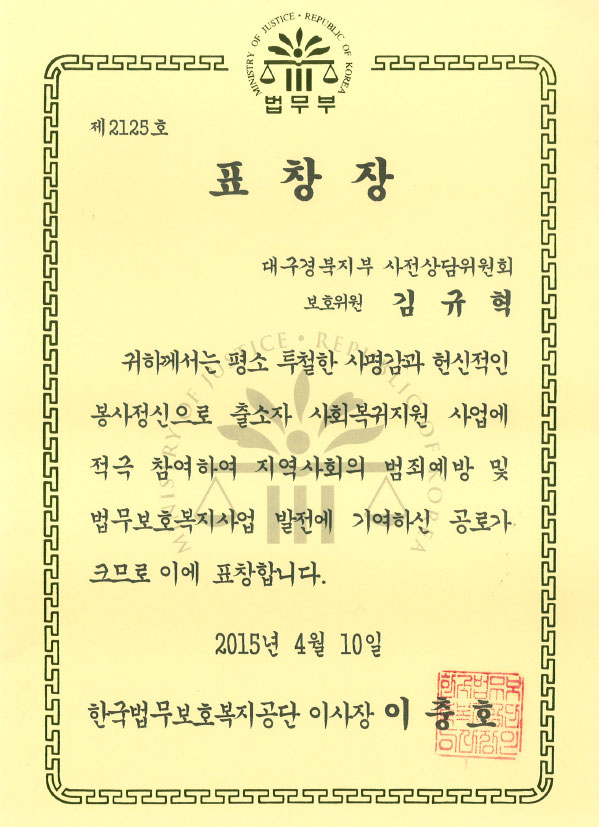 MINISTRY OF JUSTICE • REPUBLIC OF KOREA
법무부
제2125호
표 창 장
대구경북지부 사전상담위원회
보호위원 김 규 혁
귀하께서는 평소 투철한 사명감과 헌신적인
봉사정신으로 출소자 사회복귀지원 사업에
적극 참여하여 지역사회의 범죄예방 및
법무보호복지사업 발전에 기여하신 공로가
크므로 이에 표창합니다.
MINISTRY OF JUSTICE • REPUBLIC OF KOREA
2015년 4월 10일
한국법무보호복지공단 이사장 이 충 호